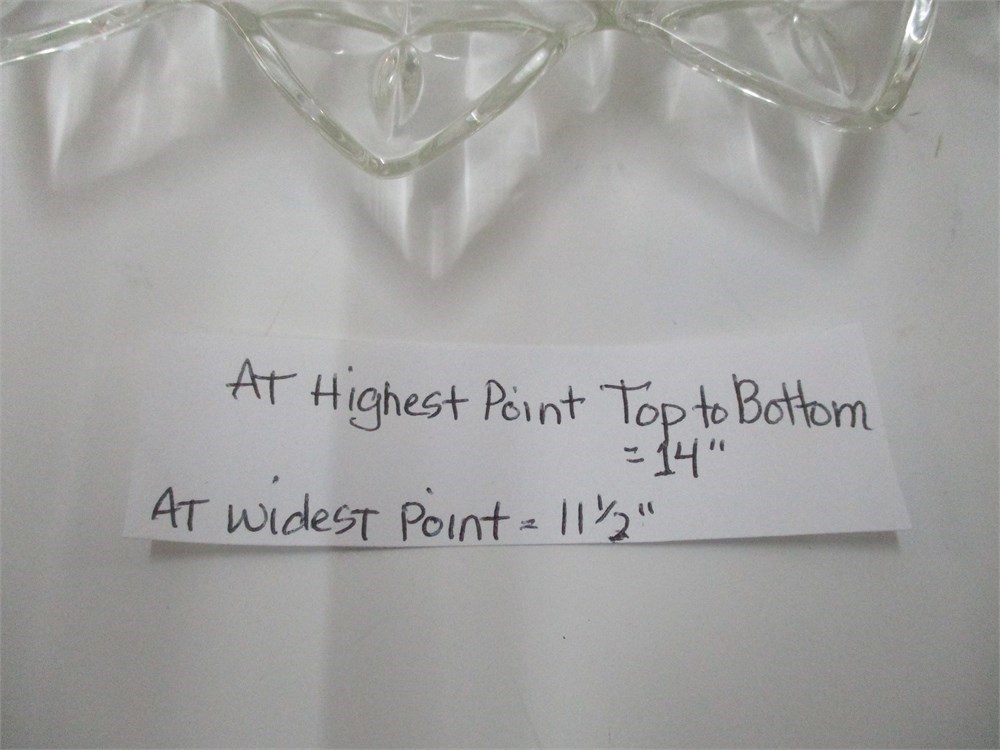 At Highest Point Top to Bottom
= 14"
At widest Point = 11 1/2"